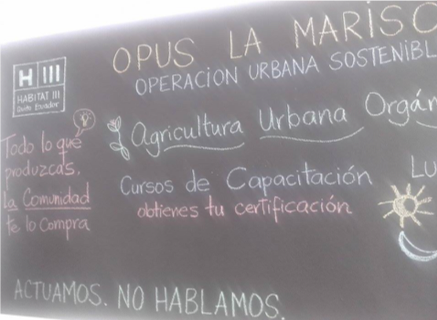 OPUS LA MARISC
OPERACION URBANA SOSTENIBL
H III
HABITAT III
Quito Ecuador
Agricultura Urbana Orgán
Todo lo que
produzcas.
La Comunidad
te lo compra
Cursos de Capacitación Lu
obtienes tu certificación
ACTUAMOS. NO HABLAMOS.